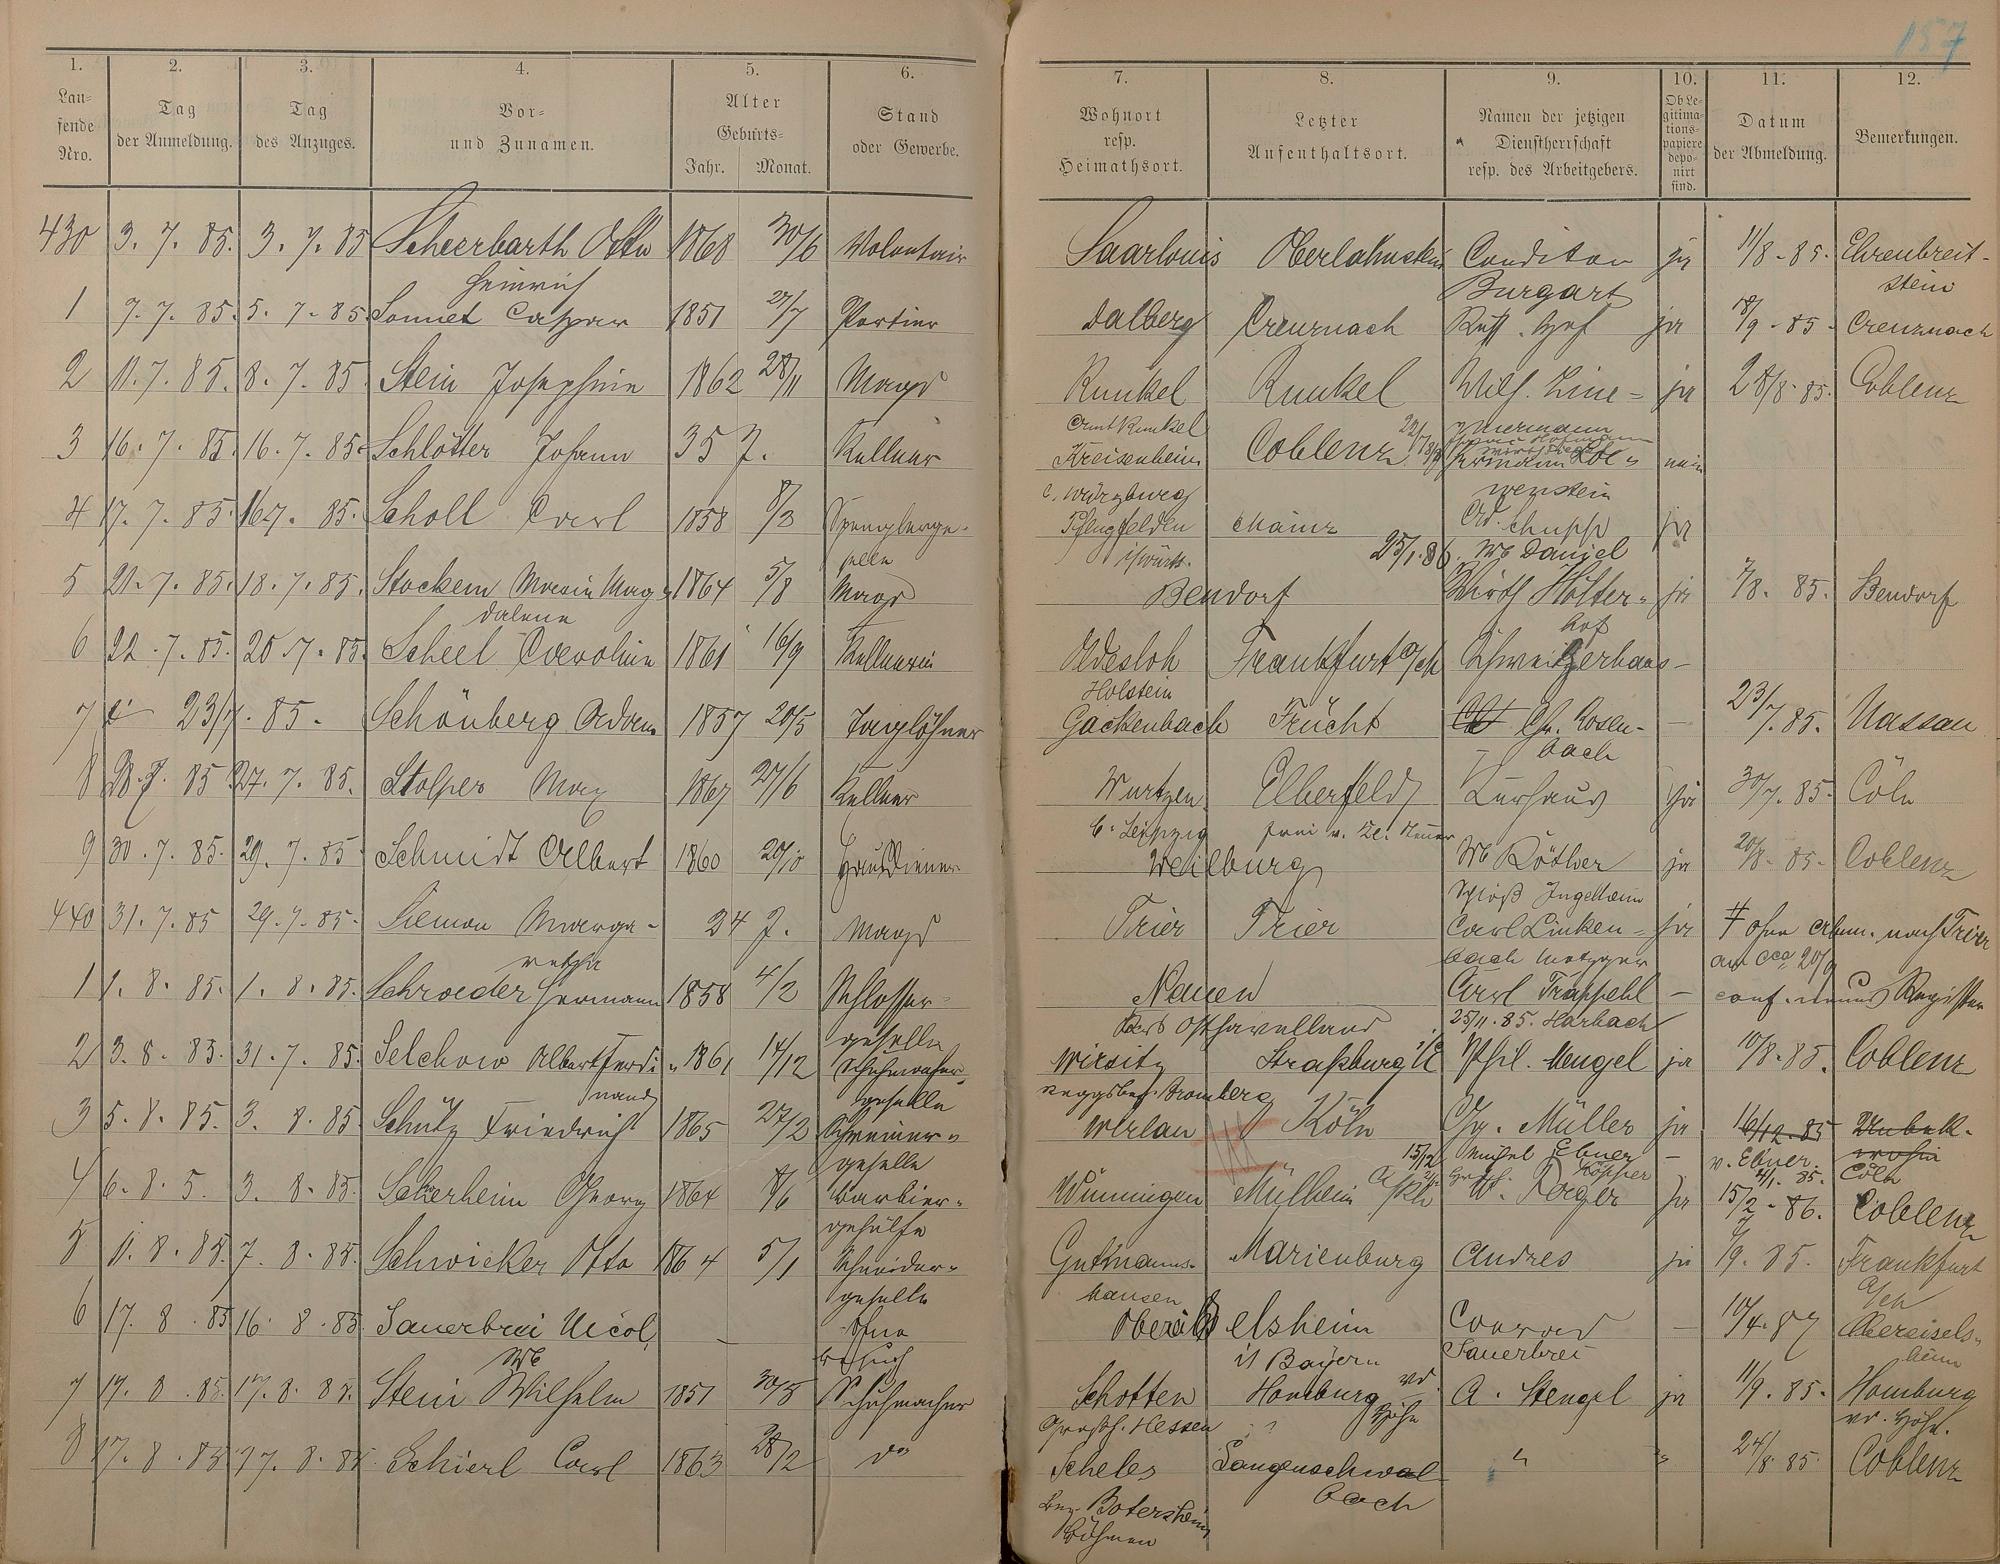 157
1. 2. 3. 4. 5. 6. 7. 8. 9. 10. 11. 12.
Lau-
fende
Nro.
Tag
der Anmeldung.
Tag
des Anzuges.
Vor-
und Zunamen.
Alter
Geburts-
Jahr. Monat.
Stand
oder Gewerbe.
Wohnort
resp.
Heimathsort.
Letzter
Aufenthaltsort.
Namen der jetzigen
Dienstherrschaft
resp. des Arbeitgebers.
Ob Le-
gitima-
tions-
papiere
depo-
nirt
sind.
Datum
der Abmeldung.
Bemerkungen.
430 3. 7. 85. 3. 7. 85 Scheerbarth Otto 1868 30/6 Volontair Saarlouis Oberlahnstein Conditor ja 11/8 - 85. Ehrenbreit-
Heinrich Burgart stein
1 7. 7. 85. 5. 7. 85. Sonnet Caspar 1851 27/7 Portier Dalberg Creuznach Russ. Hof ja 18/9 - 85. Creuznach
2 11. 7. 85. 8. 7. 85. Stein Josephine 1862 28/11 Magd Runkel Runkel Wilh. Zim- ja 28/8. 85. Coblenz
Amt Runkel mermann
3 16. 7. 85. 16. 7. 85. Schlötter Johann 35 J. Kellner Kreisenheim Coblenz Hermann Löe- nein
b. Würzburg wenstein
4 17. 7. 85. 16. 7. 85. Scholl Carl 1858 8/3 Spenglerge- Pflugfelden Mainz Ad. Schupp ja
selle i/Württ. 25/1. 86. Wb Daniel
5 21. 7. 85. 18. 7. 85. Stockem Maria Mag- 1864 5/8 Magd Bendorf Wirth Hölter- ja 7/8. 85. Bendorf
dalena hof
6 22. 7. 85. 20. 7. 85. Scheel Caroline 1861 16/9 Kellnerin Oldesloh Frankfurt a/M Schweitzerhaus -
Holstein
7 23/7. 85. Schönberg Adam 1857 20/5 Taglöhner Gackenbach Frücht Chr. Rosen- - 23/7. 85. Nassau
bach
8 28. 7. 85 27. 7. 85. Stolper Max 1867 27/6 Kellner Wurtzen Elberfeld Kurhaus ja 30/7. 85. Cöln
b. Leipzig
9 30. 7. 85. 29. 7. 85. Schmidt Albert 1860 20/10 Hausdiener Weilburg Wb Röther ja 20/8. 85. Coblenz
Schloß Ingelheim
440 31. 7. 85 29. 7. 85. Siemon Marga- 24 J. Magd Trier Trier Carl Linken- ja ohne Abm. nach Trier
retha bach Metzger am 20/9
1 1. 8. 85. 1. 8. 85. Schroeder Hermann 1858 4/2 Schlosser- Nauen Carl Trappehl - Register
geselle Osthavelland 25/11. 85. Harbach
2 3. 8. 85. 31. 7. 85. Selchow Albert Ferdi- 1861 14/12 Schuhmacher- Wirsitz Straßburg i/E Phil. Mengel ja 10/8. 85. Coblenz
nand geselle Reggsbez. Bromberg
3 5. 8. 85. 3. 8. 85 Schütz Friedrich 1865 27/2 Schreiner- Werlau Köln Chr. Müller ja 16/12. 85 Unbek.
geselle 15/12 Ebner - v. Ebner. 85. wohin
Cöln
4 6. 8. 5. 3. 8. 85. Scherheim Georg 1864 8/6 Barbier- Winningen Mülheim a/Rh W. Roeger ja 15/2. 86. Coblenz
gehülfe
5 11. 8. 85. 7. 8. 85. Schwicker Otto 1864 5/1 Schneider- Gutmanns- Marienburg Andres ja 7/9. 85. Frankfurt
geselle hausen a/M
6 17. 8. 85 16. 8. 85. Sauerbrei Nicol. - ohne Obereiselsheim Conrad - 10/4. 87 Obereisels-
Wb Besuch i/ Bayern Sauerbrei heim
7 17. 8. 85. 17. 8. 85. Stein Wilhelm 1851 30/5 Schuhmacher Schotten Homburg v. d. A. Stengel ja 11/9. 85. Homburg
Großh. Hessen Höhe v. Höhe.
8 17. 8. 85 17. 8. 85 Schierl Carl 1863 28/12 do Scheles Langenschwal- " " 24/8. 85. Coblenz
Bez. bach
Böhmen